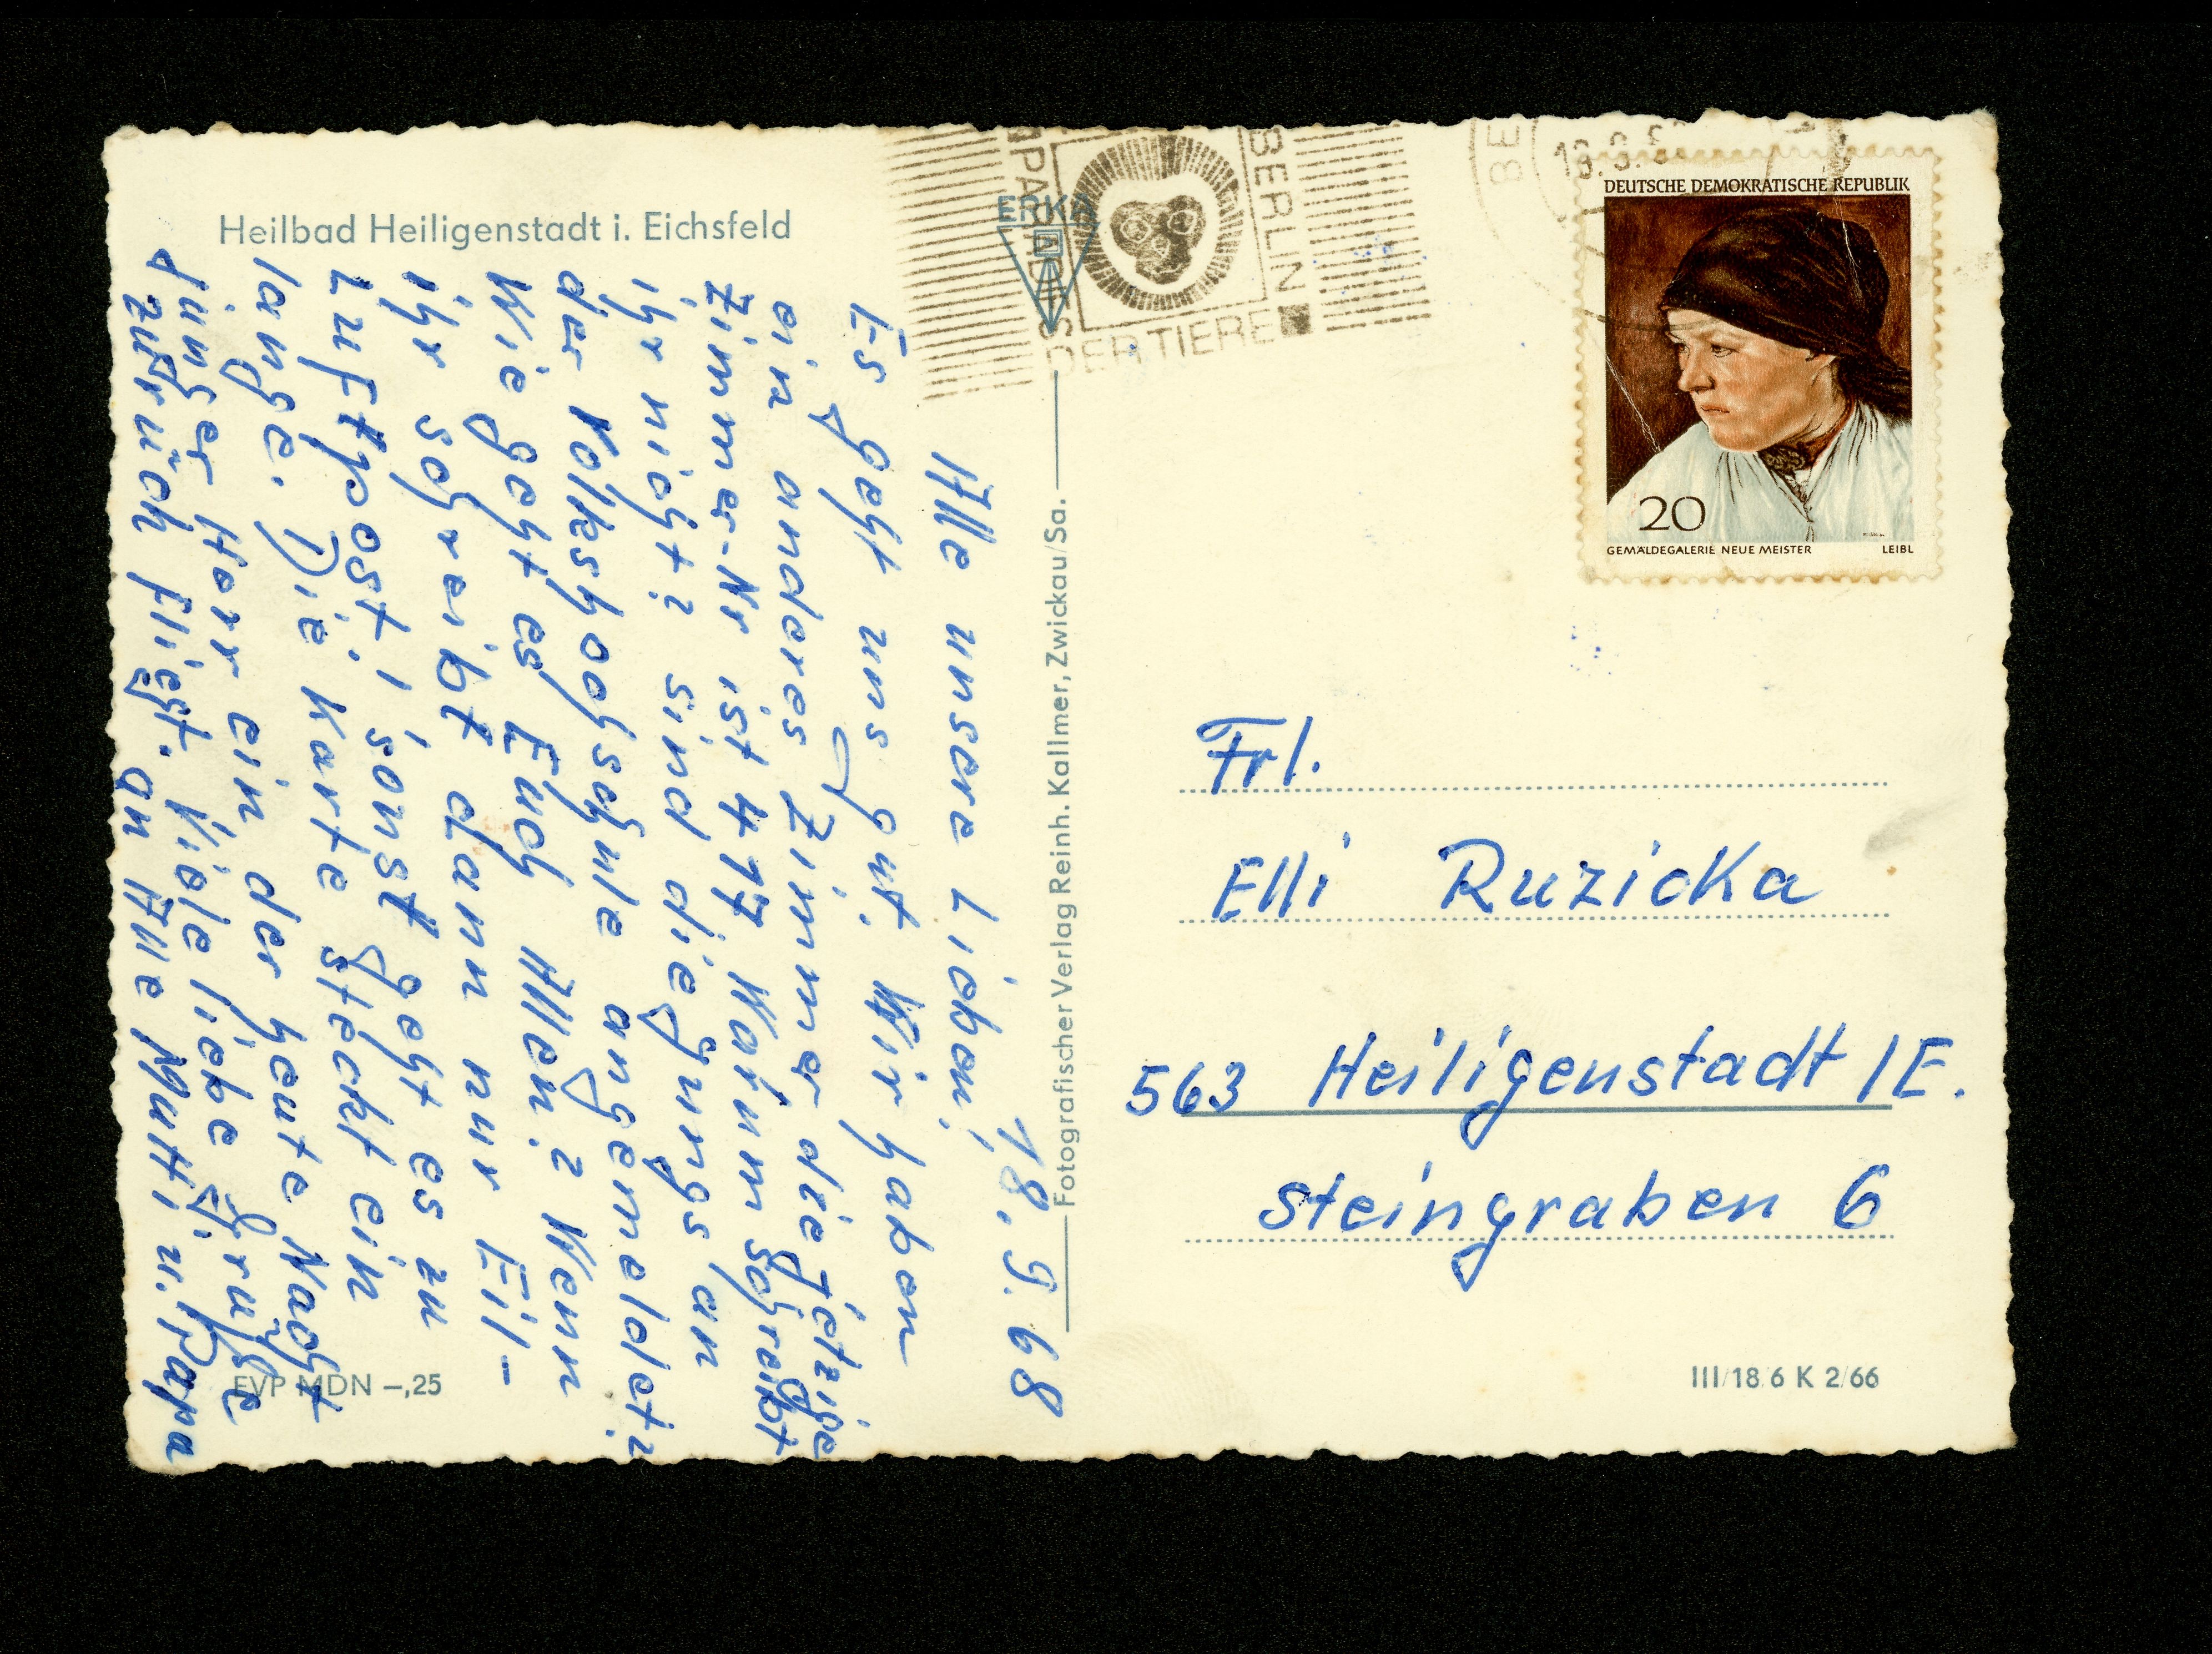 Heilbad Heiligenstadt i. Eichsfeld
18. 9. 68
Alle unsere Lieben!
Es geht uns gut. Wir haben
ein anderes Zimmer die jetzige
Zimmer-Nr ist 417 Warum schreibt
ihr nicht? sind die Jungs an
der Volkshochschule angemeldet?
Wie geht es Euch Allen? Wenn
ihr schreibt dann nur Eil-
Luftpost, sonst geht es zu
lange. Die Karte steckt ein
junger Herr ein der heute Nacht
zurück fliegt. Viele liebe Grüße
an Alle Mutti u. Papa
EVP MDN –,25
ERKA
Fotografischer Verlag Reinh. Kallmer, Zwickau/Sa.
BERLIN
PARADIES
DER TIERE
BE
DEUTSCHE DEMOKRATISCHE REPUBLIK
20
GEMÄLDEGALERIE NEUE MEISTER LEIBL
Frl.
Elli Ruzicka
563 Heiligenstadt /E.
Steingraben 6
III/18/6 K 2/66